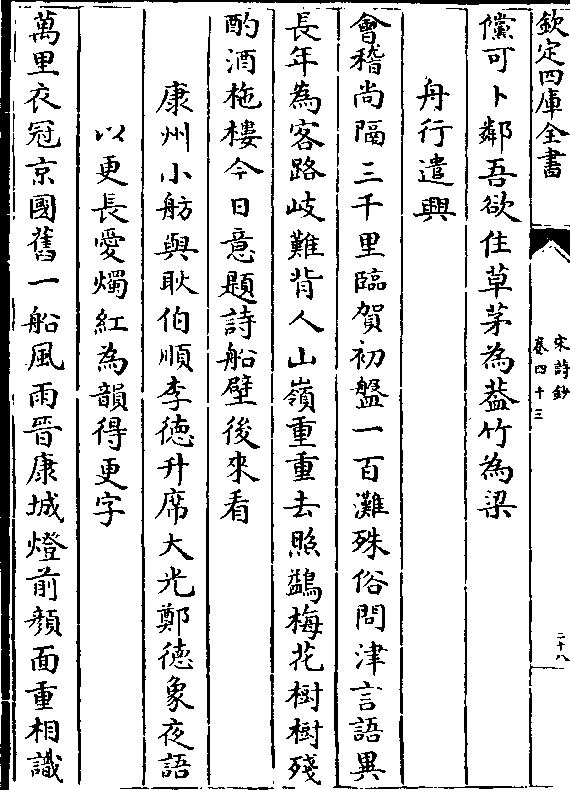 欽定四庫全書
宋詩鈔
卷四十三
二十八
儻可卜鄰吾欲住草茅為葢竹為梁
舟行遣興
會稽尚隔三千里臨賀初盤一百灘殊俗問津言語異
長年為客路歧難背人山嶺重重去照鷁梅花樹樹殘
酌酒柂樓今日意題詩船壁後來看
康州小舫與耿伯順李德升席大光鄭德象夜語
以更長愛燭紅為韻得更字
萬里衣冠京國舊一船風雨晉康城燈前顏面重相識